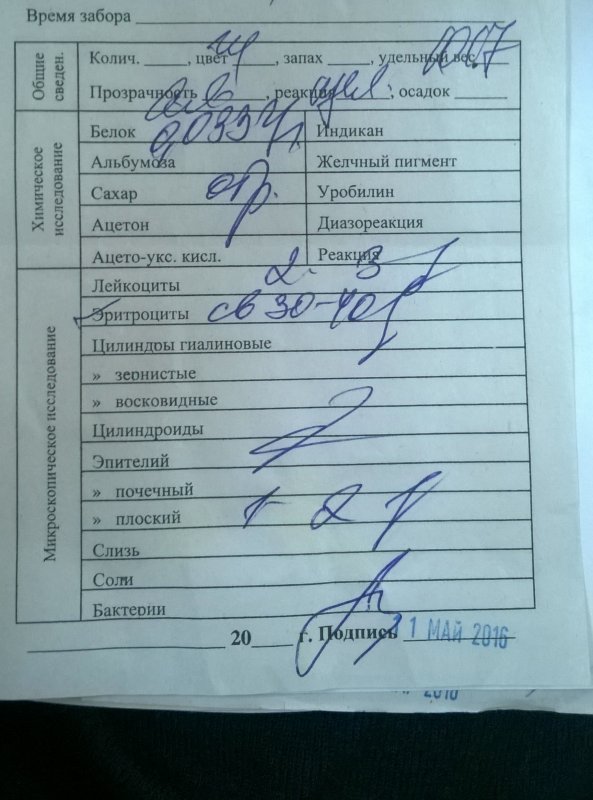 Время забора
Общие сведен.
Колич. , цвет , запах , удельный вес 1007
Прозрачность , реакция , осадок
Химическое исследование
Белок 0,033
Индикан
Альбумоза
Желчный пигмент
Сахар отр.
Уробилин
Ацетон
Диазореакция
Ацето-укс. кисл.
Реакция
Микроскопическое исследование
Лейкоциты 2-3
Эритроциты св 30-40
Цилиндры гиалиновые
» зернистые
» восковидные
Цилиндроиды
Эпителий
» почечный
» плоский 1-2
Слизь
Соли
Бактерии
20 г. Подпись 11 МАЙ 2016
2016